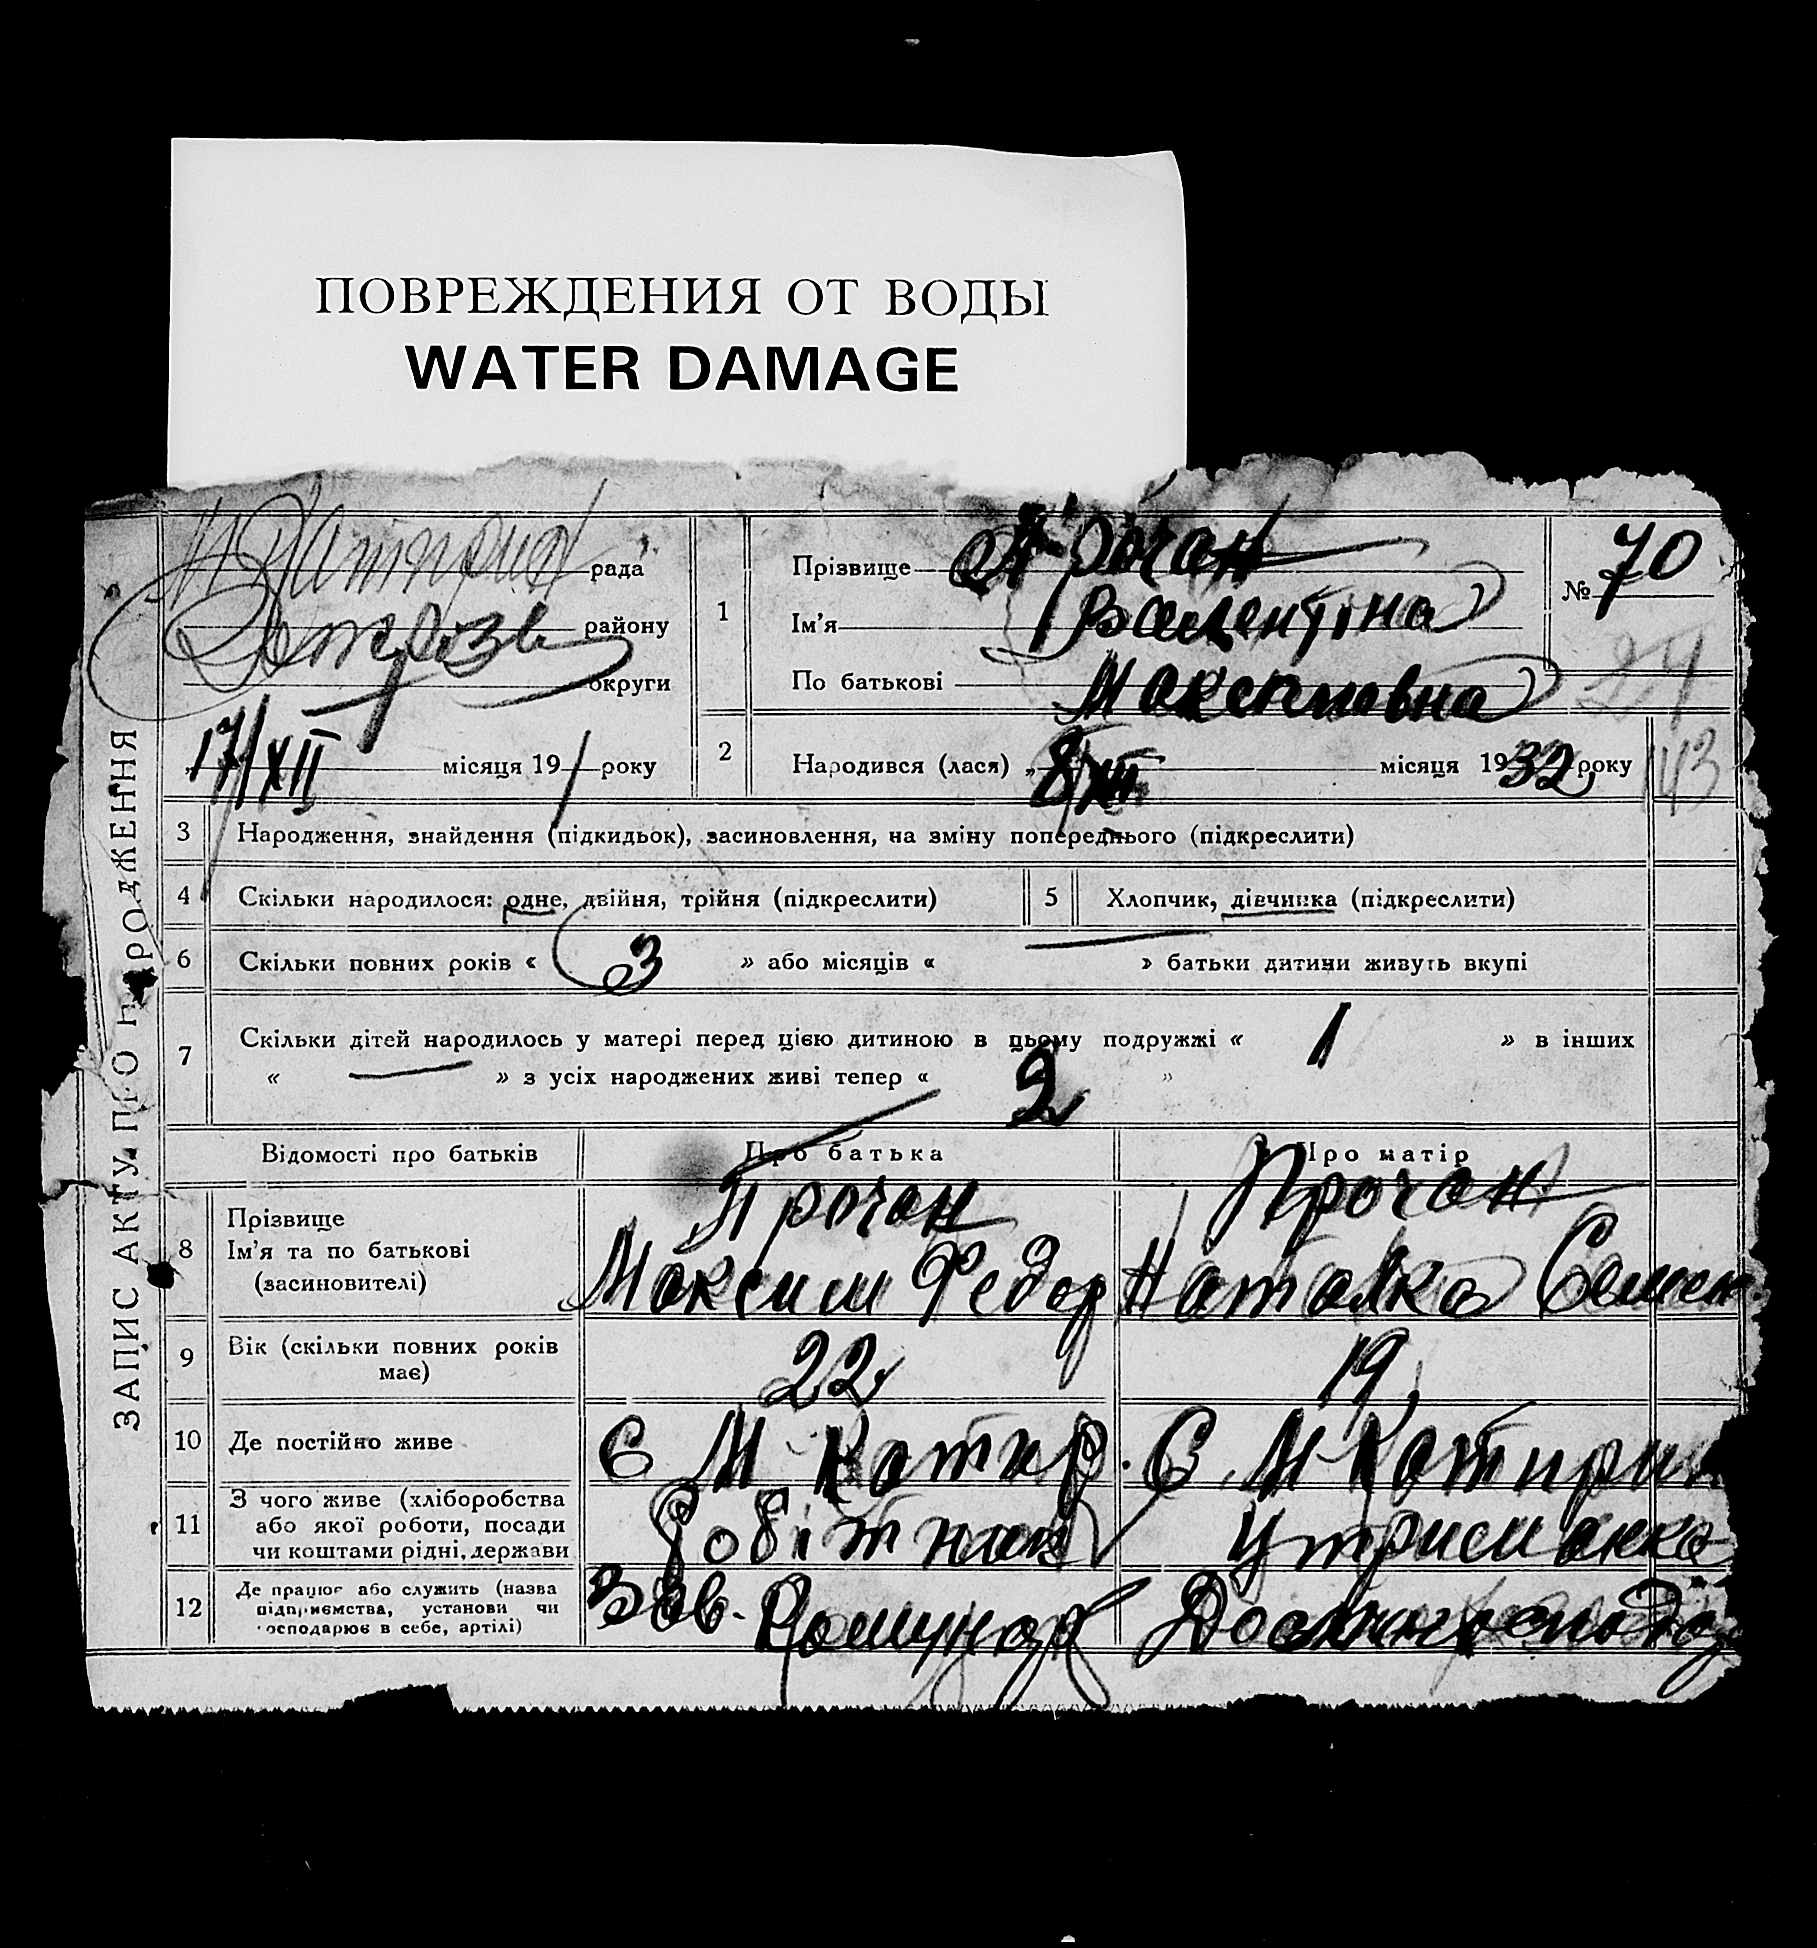 ПОВРЕЖДЕНИЯ ОТ ВОДЫ
WATER DAMAGE
ЗАПИС АКТУ ПРО НАРОДЖЕННЯ
рада
району
округи
17/XII місяця 19 року
1
Прізвище Прочан
Ім'я Валентіна
По батькові Максимовна
№ 70
24
2
Народився (лася) „8/XII місяця 1932 року
143
3 Народження, знайдення (підкидьок), засиновлення, на зміну попереднього (підкреслити)
4 Скільки народилося: одне, двійня, трійня (підкреслити) 5 Хлопчик, дівчинка (підкреслити)
6 Скільки повних років « 3 » або місяців « — » батьки дитини живуть вкупі
7 Скільки дітей народилось у матері перед цією дитиною в цьому подружжі « 1 » в інших
« — » з усіх народжених живі тепер « 2 »
Відомості про батьків Про батька Про матір
8 Прізвище Прочан Прочан
Ім'я та по батькові Максим Федор Наталка Семен
(засиновителі)
9 Вік (скільки повних років має) 22 19
10 Де постійно живе С М-Катир. С. М-Катирин
11 З чого живе (хліборобства Робітник Утриманка
або якої роботи, посади
чи коштами рідні, держави
12 Де працює або служить (назва Зав.
підприємства, установи чи
господарює в себе, артілі)